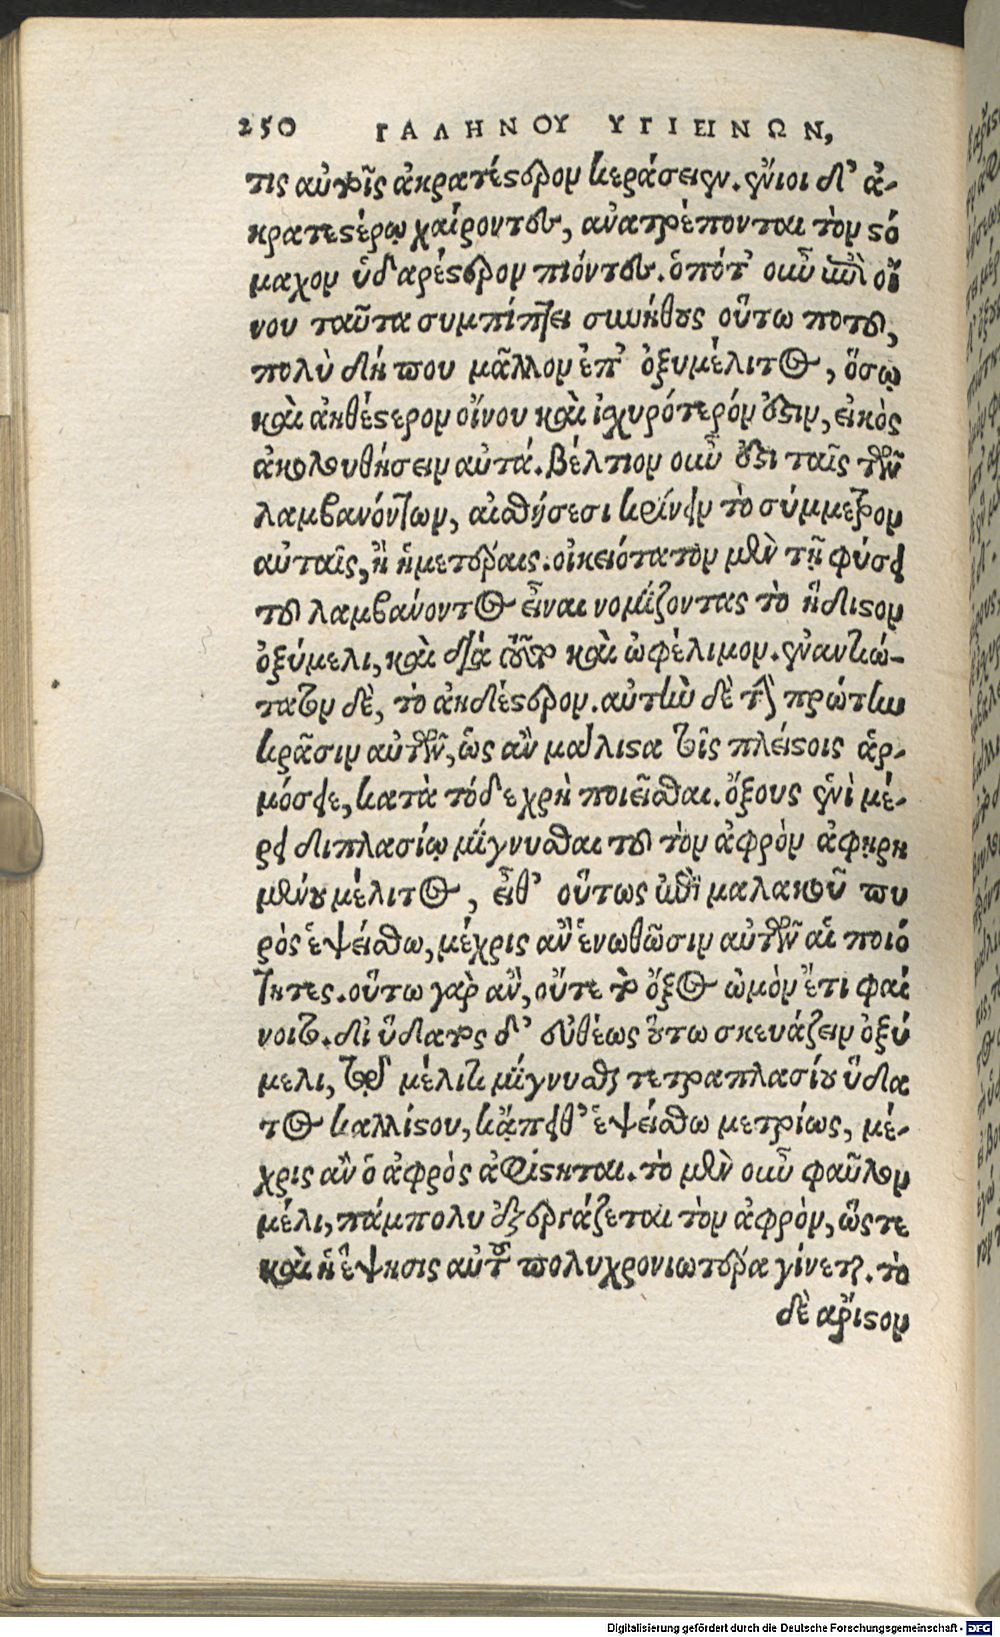 250 ΓΑΛΗΝΟΥ ΥΓΙΕΙΝΩΝ,
τις αὐτοῖς ἀκρατέστερον κεράσειεν. ἔνιοι δ' ἀ-
κρατεστέρῳ χαίροντες, ἀνατρέπονται τὸν στό
μαχον ὑδαρέστερον πιόντες. ὁπότ' οὖν ἐπὶ οἴ
νου ταῦτα συμπίπτει συνήθους οὕτω ποτοῦ,
πολὺ δήπου μᾶλλον ἐπ' ὀξυμέλιτος, ὅσῳ
καὶ ἀηθέστερον οἴνου καὶ ἰσχυρότερόν ἐστιν, εἰκὸς
ἀκολουθήσειν αὐτά. βέλτιον οὖν ἐστι ταῖς τῶν
λαμβανόντων, αἰσθήσεσι κρίνειν τὸ σύμμετρον
αὐταῖς, ἢ ἡμετέραις. οἰκειότατον μὲν τῇ φύσει
τοῦ λαμβάνοντος εἶναι νομίζοντας τὸ ἥδιστον
ὀξύμελι, καὶ διά τοῦτο καὶ ὠφέλιμον. ἐναντιώ-
τατον δὲ, τὸ ἀηδέστερον. αὐτὴν δὲ τὴν πρώτην
κρᾶσιν αὐτῶν, ὡς ἂν μάλιστα τοῖς πλείστοις ἁρ-
μόσειε, κατὰ τόδε χρὴ ποιεῖσθαι. ὄξους ἑνὶ μέ-
ρει διπλασίῳ μίγνυσθαι τοῦ τὸν ἀφρὸν ἀφῃρη
μένου μέλιτος, εἶθ' οὕτως ἐπὶ μαλακοῦ πυ
ρὸς ἑψείσθω, μέχρις ἂν ἑνωθῶσιν αὐτῶν αἱ ποιό
τητες. οὕτω γὰρ ἂν, οὔτε τὸ ὄξος ὠμὸν ἔτι φαί
νοιτο. δι ὕδατος δ' εὐθέως οὕτω σκευάζειν ὀξύ
μελι, τῷ δὲ μέλιτι μίγνυσθαι τετραπλασίου ὕδα
τος καλλίστου, κἄπειθ' ἑψείσθω μετρίως, μέ-
χρις ἂν ὁ ἀφρὸς ἀφίστηται. τὸ μὲν οὖν φαῦλον
μέλι, πάμπολυ ἐξεργάζεται τὸν ἀφρὸν, ὥστε
καὶ ἡ ἕψησις αὐτοῦ πολυχρονιωτέρα γίνεται. τὸ
δὲ ἄριστον
Digitalisierung gefördert durch die Deutsche Forschungsgemeinschaft - DFG